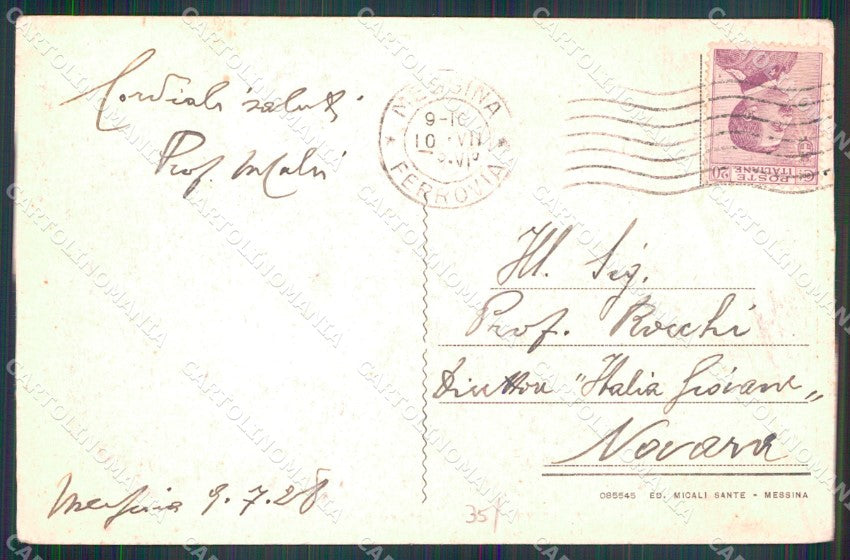 Cordiali saluti
Prof.
Messina 9.7.28
MESSINA
9-10
10 VII
FERROVIA
POSTE
ITALIANE
C. 20
Ill. Sig.
Prof. Rocchi
Direttore "Italia Giovane„
Novara
085545 ED. MICALI SANTE - MESSINA
35
CARTOLINOMANIA